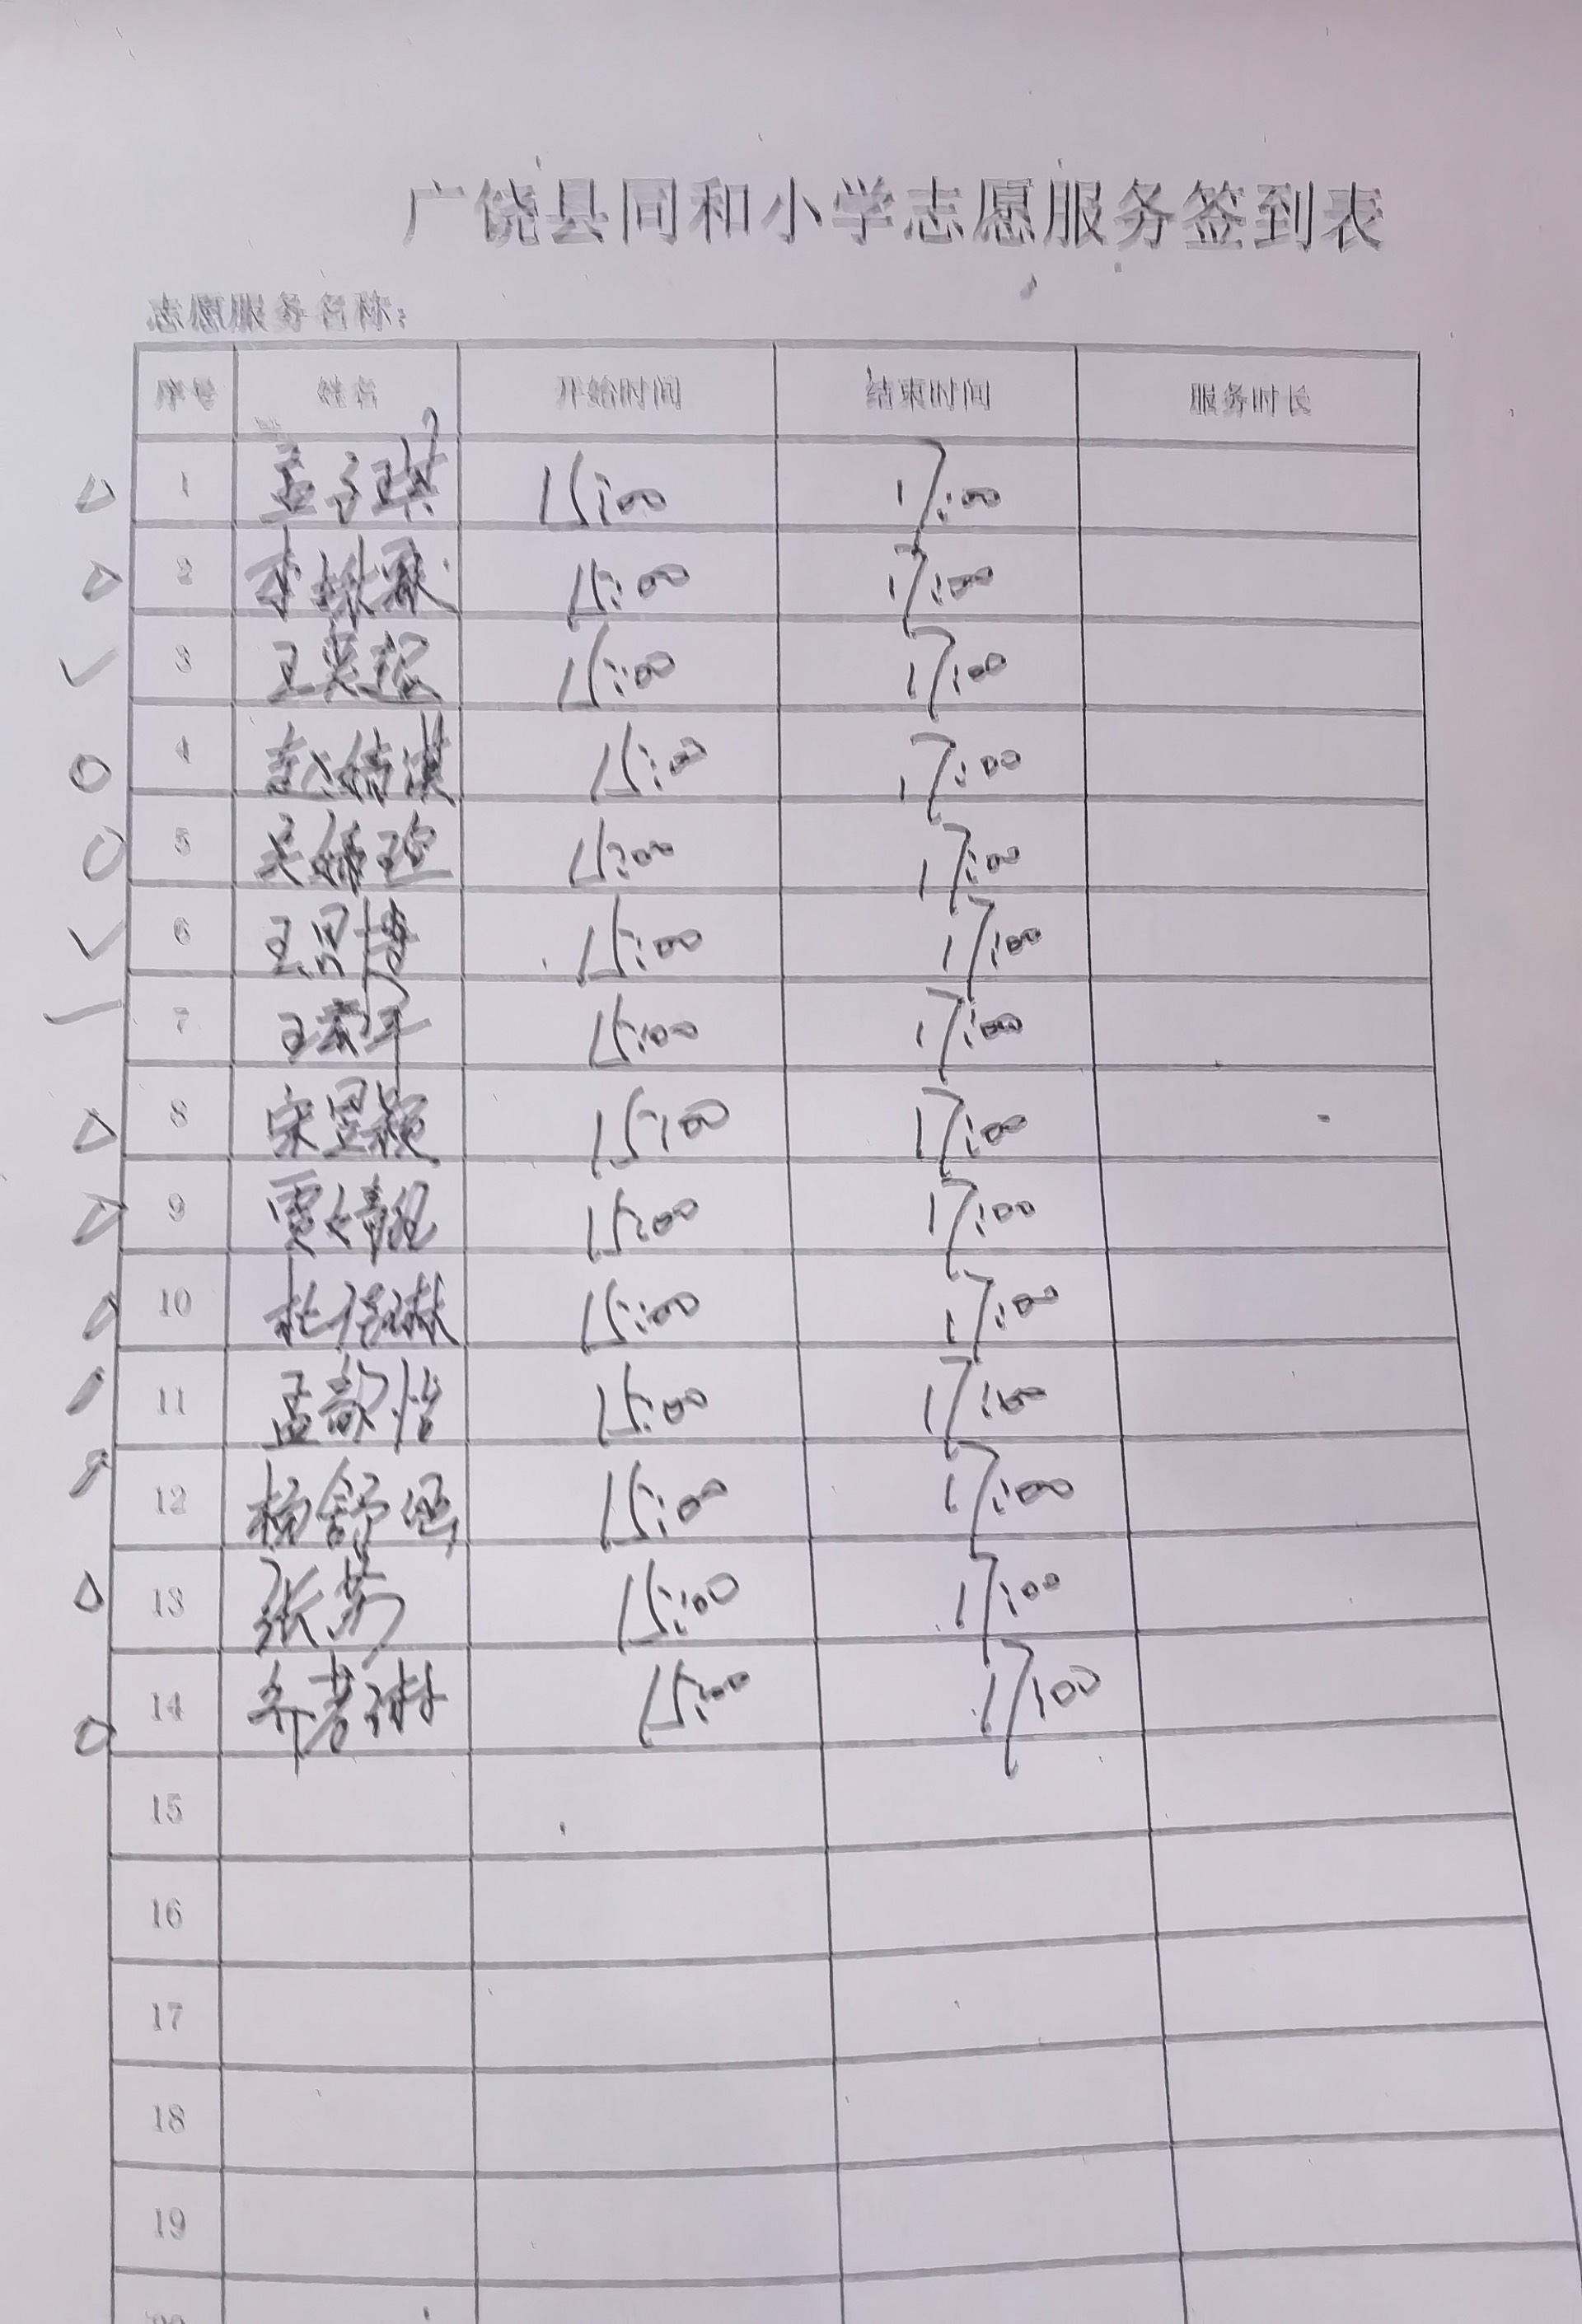 广饶县同和小学志愿服务签到表
志愿服务名称：
序号 姓名 开始时间 结束时间 服务时长
1 孟子琪 15:00 17:00
2 李 15:00 17:00
3 王昊 15:00 17:00
4 赵婧淇 15:00 17:00
5 吴 15:00 17:00
6 王思博 15:00 17:00
7 王 15:00 17:00
8 宋昱颖 15:00 17:00
9 贾婧 15:00 17:00
10 杜 琳 15:00 17:00
11 孟歆怡 15:00 17:00
12 杨舒 15:00 17:00
13 张 15:00 17:00
14 齐 琳 15:00 17:00
15
16
17
18
19